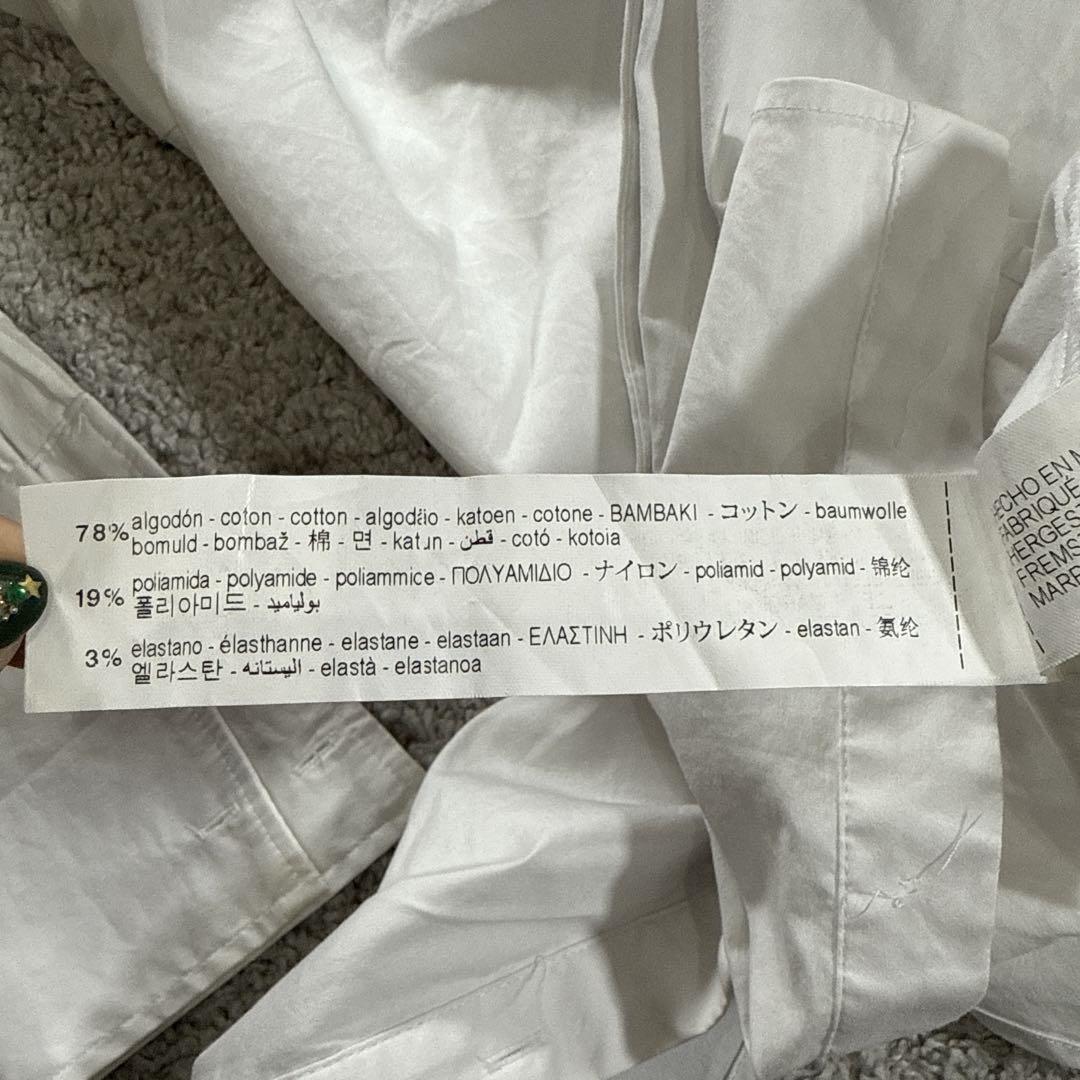 78% algodón - coton - cotton - algodão - katoen - cotone - BAMBAKI - コットン - baumwolle
bomuld - bombaž - 棉 - 면 - katun - قطن - cotó - kotoia
19% poliamida - polyamide - poliammice - ΠΟΛΥΑΜΙΔΙΟ - ナイロン - poliamid - polyamid - 锦纶
폴리아미드 - بولياميد
3% elastano - élasthanne - elastane - elastaan - ΕΛΑΣΤΙΝΗ - ポリウレタン - elastan - 氨纶
엘라스탄 - اليستانه - elastà - elastanoa
ECHO EN
FABRIQUÉ
HERGEST
FREMST
MARR